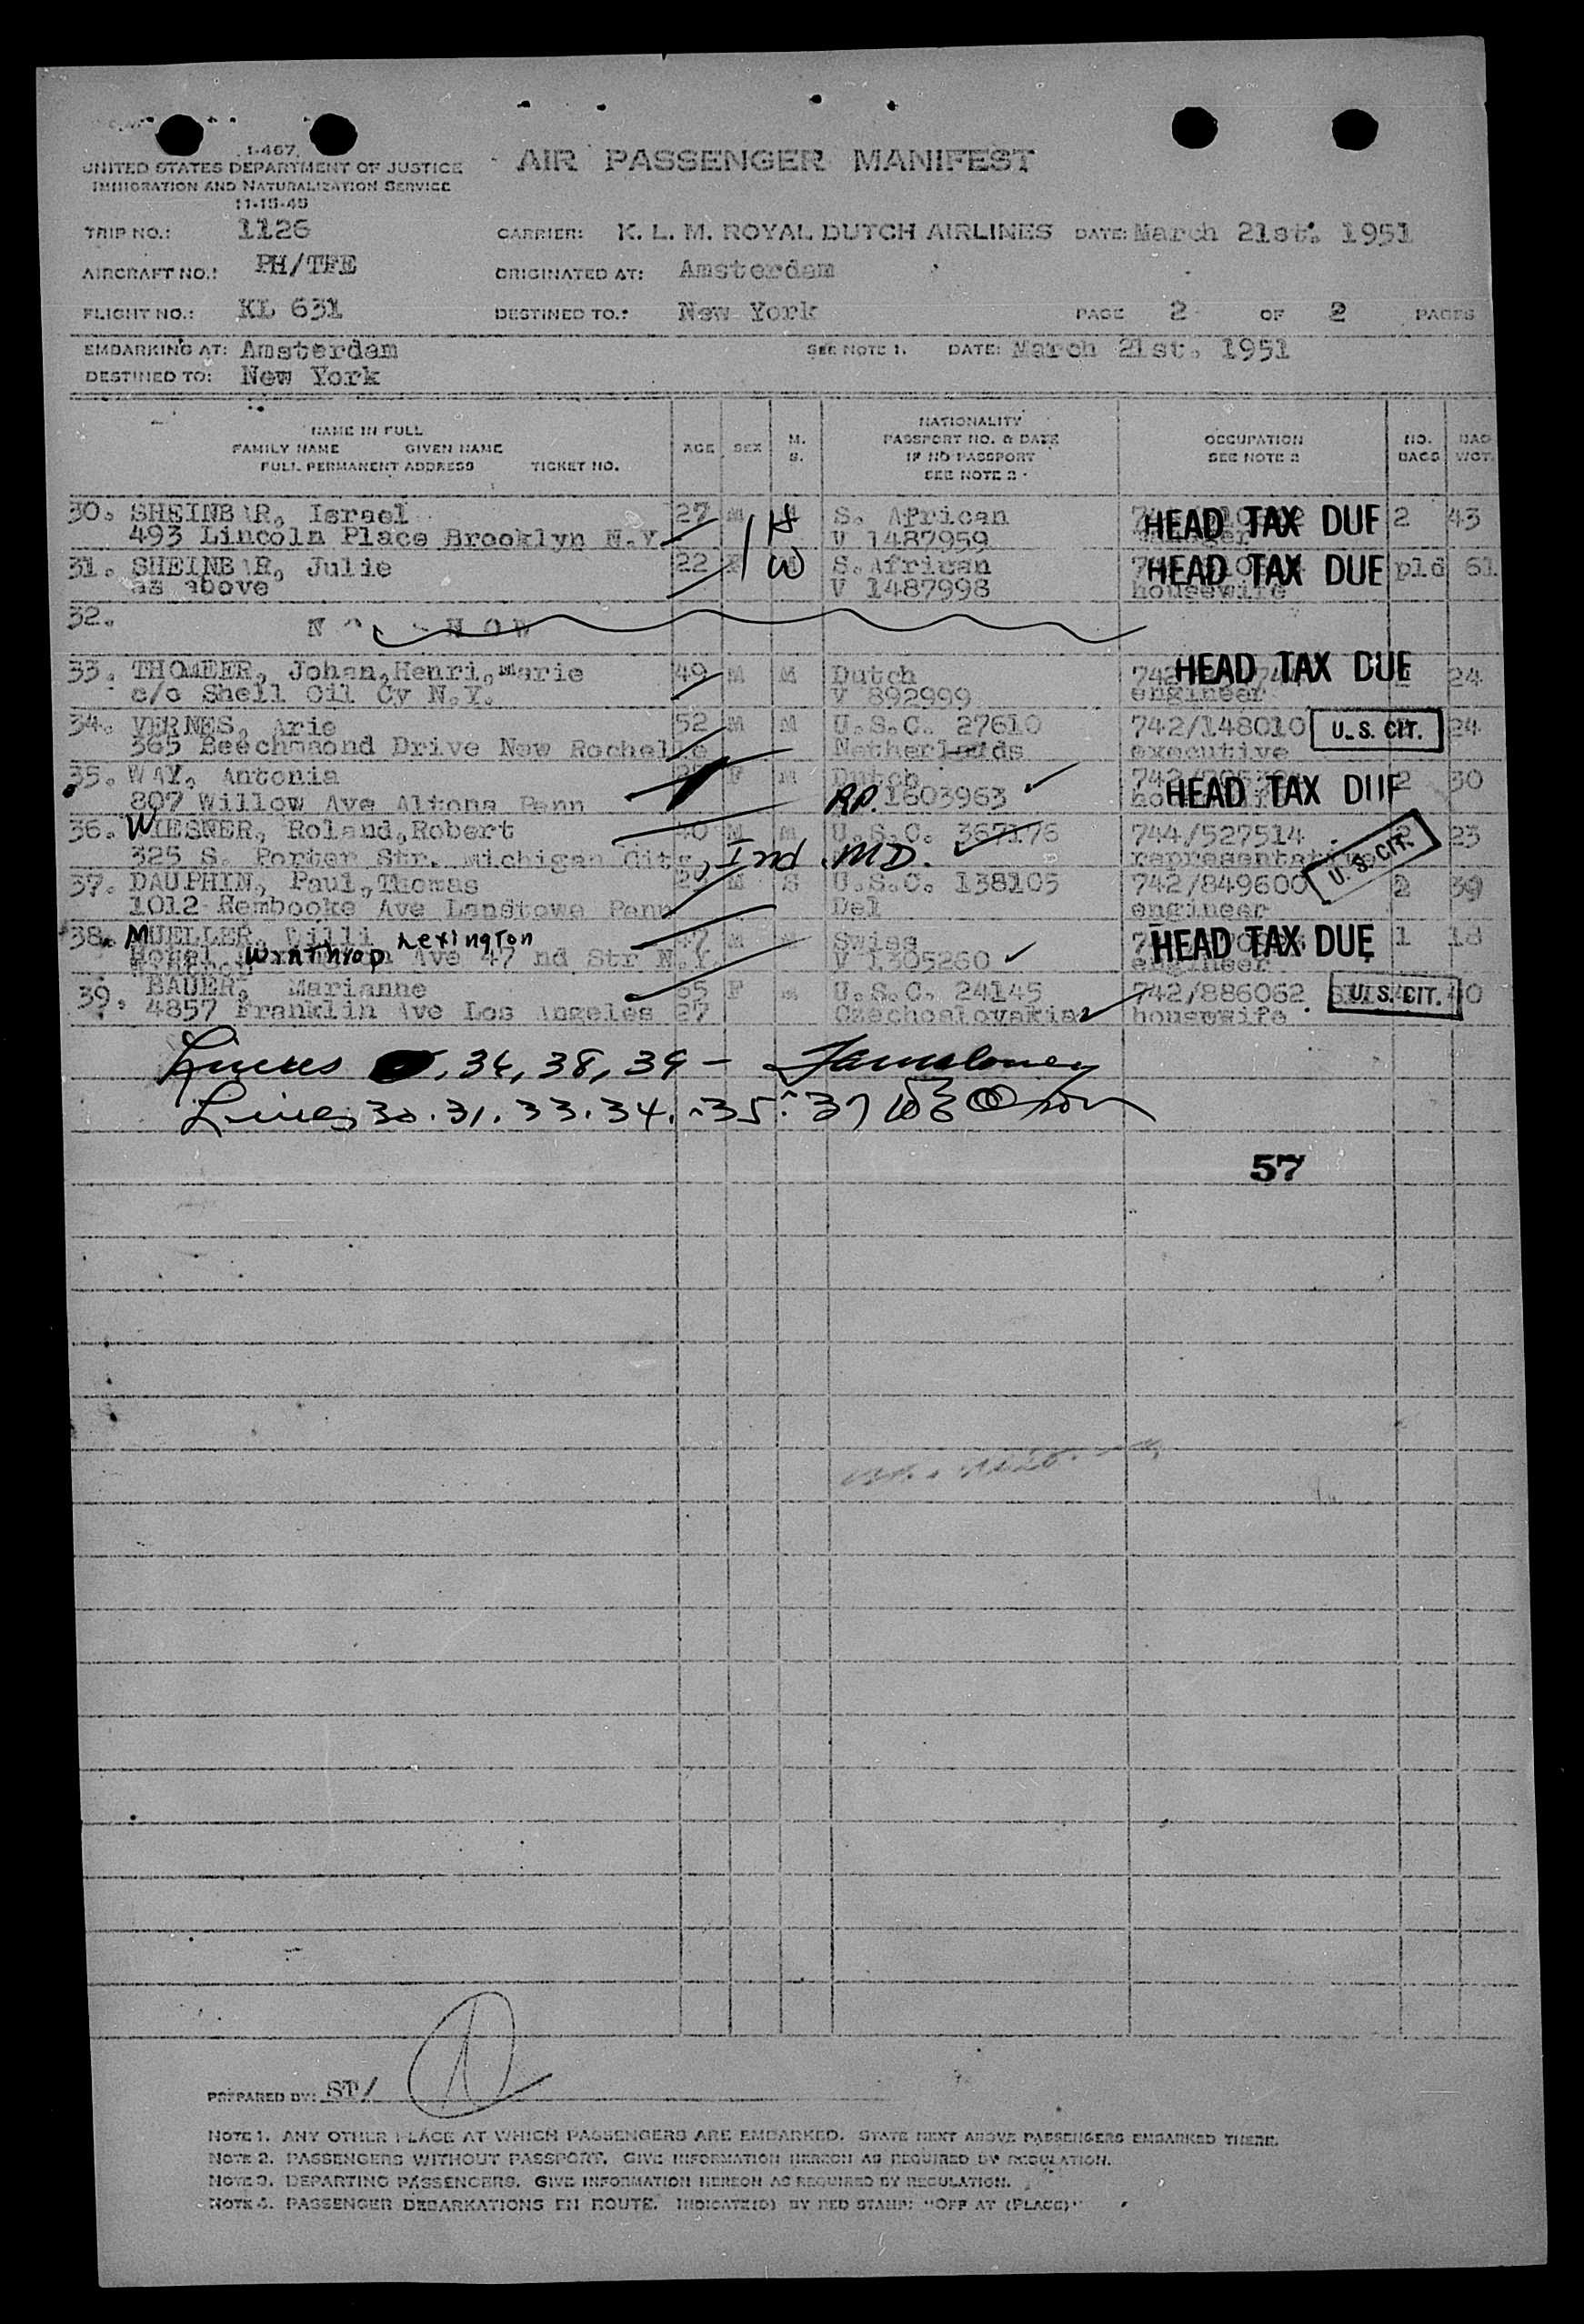 I-467
UNITED STATES DEPARTMENT OF JUSTICE
IMMIGRATION AND NATURALIZATION SERVICE
11-15-49
AIR PASSENGER MANIFEST
TRIP NO.: 1126 CARRIER: K. L. M. ROYAL DUTCH AIRLINES DATE: March 21st. 1951
AIRCRAFT NO.: PH/TFE ORIGINATED AT: Amsterdam
FLIGHT NO.: KL 631 DESTINED TO.: New York PAGE 2 OF 2 PAGES
EMBARKING AT: Amsterdam SEE NOTE 1. DATE: March 21st. 1951
DESTINED TO: New York
NAME IN FULL
FAMILY NAME GIVEN NAME
FULL PERMANENT ADDRESS TICKET NO.
AGE SEX M. S.
NATIONALITY
PASSPORT NO. & DATE
IF NO PASSPORT
SEE NOTE 2
OCCUPATION
SEE NOTE 3
NO. BAGS
BAG WGT.
30. SHEINBAR, Israel 27 M H S. African HEAD TAX DUE 2 43
493 Lincoln Place Brooklyn N.Y. V 1487959
31. SHEINBAR, Julie 22 F W S.African HEAD TAX DUE pld 61
as above V 1487998 housewife
32. NO SHOW
33. THOMEER, Johan,Henri,Marie 49 M M Dutch HEAD TAX DUE 24
c/o Shell Oil Cy N.Y. V 892999 engineer
34. VERNES, Arie 52 M M U.S.C. 27610 742/148010 U.S. CIT. 24
365 Beechmaond Drive New Rochelle Netherlands executive
35. WAY, Antonia F M Dutch HEAD TAX DUE 2 30
807 Willow Ave Altona Penn RP. 1603963
36. WIESNER, Roland,Robert 40 M M U.S.C. 367176 744/527514 U.S. CIT. 2 23
325 S. Porter Str. Michigan City, Ind. MD. representative
37. DAUPHIN, Paul,Thomas M S U.S.C. 138105 742/849600 2 39
1012 Rembooke Ave Lanstowe Penn Del engineer
38. MUELLER, Willi Lexington 47 M Swiss HEAD TAX DUE 1 18
Hotel Winthrop Ave 47 nd Str N.Y. V 1305260 engineer
39. BAUER, Marianne 35 F M U.S.C. 24145 742/886062 U.S. CIT. 40
4857 Franklin Ave Los Angeles 27 Czechoslovakia housewife
Lines , 36, 38, 39 -
Lines 30. 31. 33. 34. 35. 37
57
PREPARED BY: ST/
NOTE 1. ANY OTHER PLACE AT WHICH PASSENGERS ARE EMBARKED. STATE NEXT ABOVE PASSENGERS EMBARKED THERE.
NOTE 2. PASSENGERS WITHOUT PASSPORT. GIVE INFORMATION HEREON AS REQUIRED BY REGULATION.
NOTE 3. DEPARTING PASSENGERS. GIVE INFORMATION HEREON AS REQUIRED BY REGULATION.
NOTE 4. PASSENGER DEBARKATIONS EN ROUTE. INDICATE(D) BY RED STAMP: "OFF AT (PLACE)"